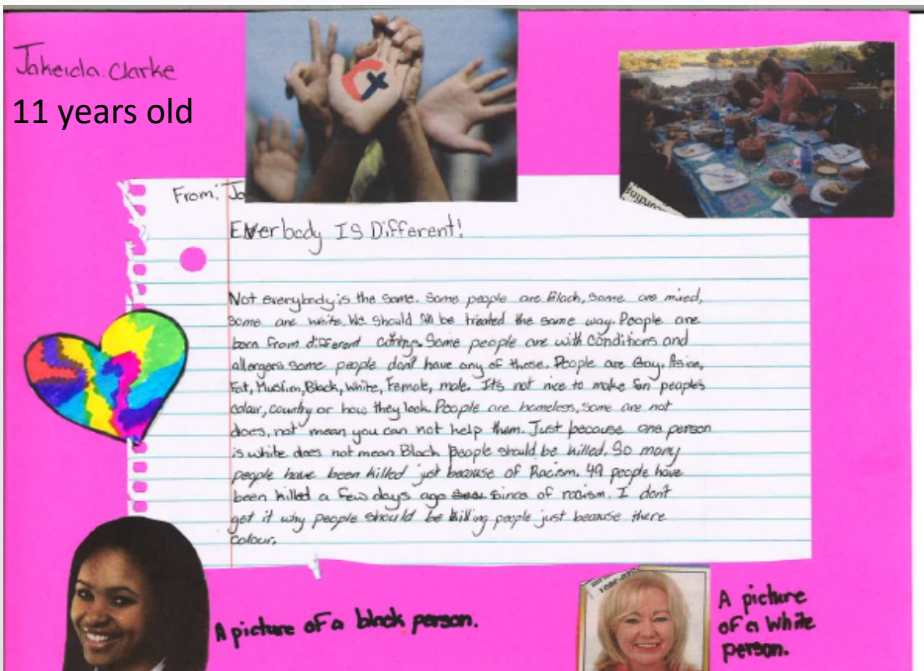 Jakeida Clarke
11 years old
From, Ja
Everbody IS Different!
Not everybody is the same. Some people are Black, some are mixed,
some are white. We should all be treated the same way. People are
born from different contrys. Some people are with conditions and
allergers some people don't have any of those. People are Gay, Asian,
Fat, Muslim, Black, White, Female, male. It's not nice to make fun people's
colour, country or how they look. People are homeless, some are not
does, not mean you can not help them. Just because one person
is white does not mean Black people should be killed. So many
people have been killed just because of Racism. 49 people have
been killed a few days ago since of racism. I don't
get it why people should be killing people just because there
colour.
A picture of a black person.
A picture
of a white
person.